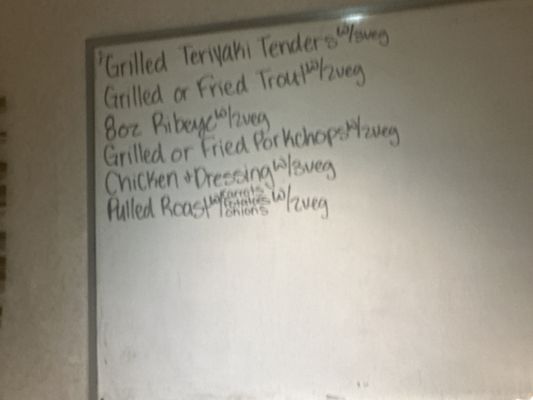 Grilled Teriyaki Tenders w/3veg
Grilled or Fried Trout w/2veg
8oz Ribeye w/2veg
Grilled or Fried Porkchops w/2veg
Chicken + Dressing w/3veg
Pulled Roast w/carrots potatoes onions w/2veg